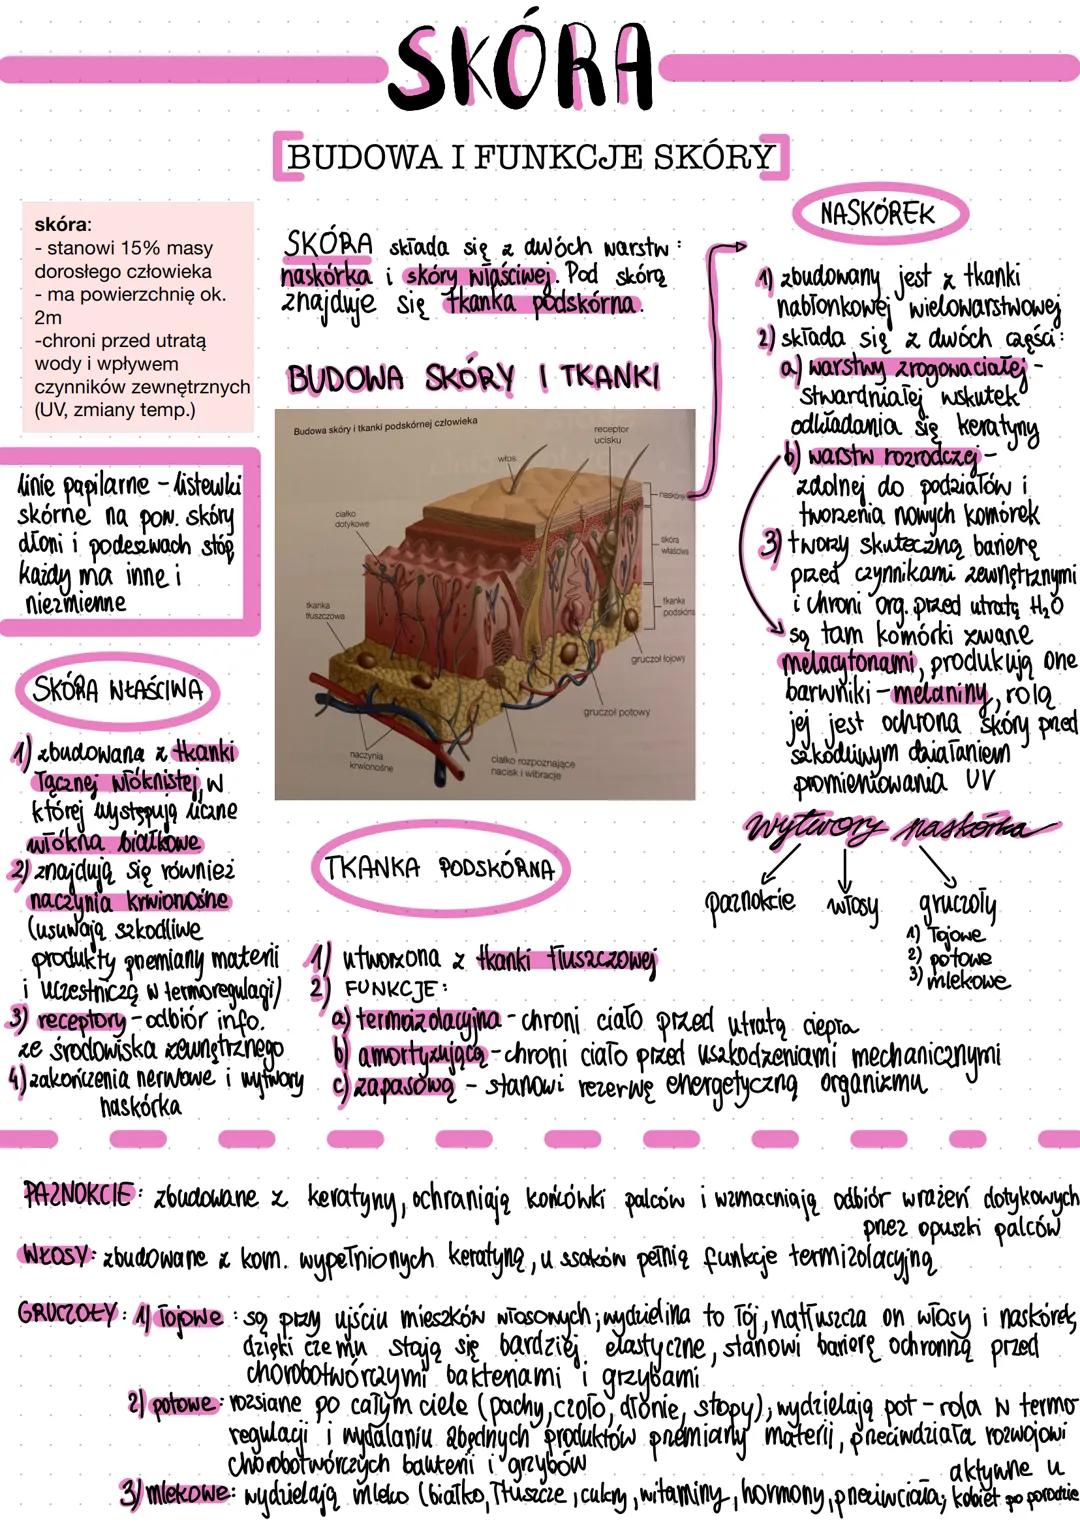 SKÓRA
BUDOWA I FUNKCJE SKÓRY
skóra:
- stanowi 15% masy
dorosłego człowieka
- ma powierzchnię ok.
2m
-chroni przed utratą
wody i wpływem
czynników zewnętrznych
(UV, zmiany temp.)
linie papilarne - listewki
skórne na pow. skóry
dłoni i podeszwach stóp
każdy ma inne i
niezmienne
SKÓRA WŁAŚCIWA
1) zbudowana z tkanki
łącznej włóknistej, w
której występują liczne
włókna białkowe
2) znajdują się również
naczynia krwionośne
(usuwają szkodliwe
produkty przemiany materii
i uczestniczą w termoregulacji)
3) receptory - odbiór info.
ze środowiska zewnętrznego
4) zakończenia nerwowe i wytwory
naskórka
SKÓRA składa się z dwóch warstw:
naskórka i skóry właściwej. Pod skórą
znajduje się tkanka podskórna.
BUDOWA SKÓRY I TKANKI
Budowa skóry i tkanki podskórnej człowieka
receptor
ucisku
włos
naskórek
ciałko
dotykowe
skóra
właściwa
tkanka
podskórna
tkanka
tłuszczowa
gruczoł łojowy
gruczoł potowy
naczynia
krwionośne
ciałko rozpoznające
nacisk i wibracje
TKANKA PODSKÓRNA
1) utworzona z tkanki tłuszczowej
2) FUNKCJE:
a) termoizolacyjna - chroni ciało przed utratą ciepła
b) amortyzującą - chroni ciało przed uszkodzeniami mechanicznymi
c) zapasową - stanowi rezerwę energetyczną organizmu
NASKÓREK
1) zbudowany jest z tkanki
nabłonkowej wielowarstwowej
2) składa się z dwóch części:
a) warstwy zrogowaciałej -
stwardniałej wskutek
odkładania się keratyny
b) warstw rozrodczej -
zdolnej do podziałów i
tworzenia nowych komórek
3) tworzy skuteczną barierę
przed czynnikami zewnętrznymi
i chroni org. przed utratą H₂O
są tam komórki zwane
melacytonami, produkują one
barwniki - melaniny, rolą
jej jest ochrona skóry przed
szkodliwym działaniem
promieniowania UV
wytwory naskórka
paznokcie włosy gruczoły
1) łojowe
2) potowe
3) mlekowe
PAZNOKCIE: zbudowane z keratyny, ochraniają końcówki palców i wzmacniają odbiór wrażeń dotykowych
przez opuszki palców
WŁOSY: zbudowane z kom. wypełnionych keratyną, u ssaków pełnią funkcje termizolacyjną
GRUCZOŁY: 1) łojowe: są przy ujściu mieszków włosowych; wydzielina to łój, natłuszcza on włosy i naskórek,
dzięki czemu stają się bardziej elastyczne, stanowi barierę ochronną przed
chorobotwórczymi bakteriami i grzybami
2) potowe: rozsiane po całym ciele (pachy, czoło, dłonie, stopy); wydzielają pot - rola w termo
regulacji i wydalaniu zbędnych produktów przemiany materii, przeciwdziała rozwojowi
chorobotwórczych bakterii i grzybów
3) mlekowe: wydzielają mleko (białko, tłuszcze, cukry, witaminy, hormony, przeciwciała; aktywne u
kobiet po porodzie